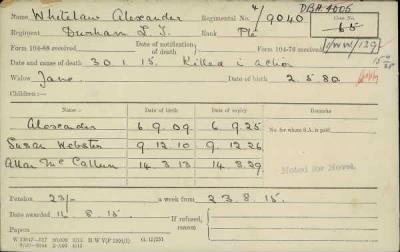 DBH 4006
Name Whitelaw Alexander Regimental No. 4/9040 Case No. 65
Regiment Durham L.I. Rank Pte
Form 104-88 received Date of notification of death Form 104-76 received 1/WW/129
Date and cause of death 30.1.15. Killed in action
Widow Jane Date of birth 2.5.80.
Children:—
Name Date of birth Date of expiry Remarks
Alexander 6.9.09. 6.9.25 No. for whom S.A. is paid
Susan Webster 9.12.10 9.12.26
Allan McCallum 14.3.13 14.3.29.
Pension 23/- a week from 23.8.15.
Date awarded 14.8.15. If refused, reason
Papers